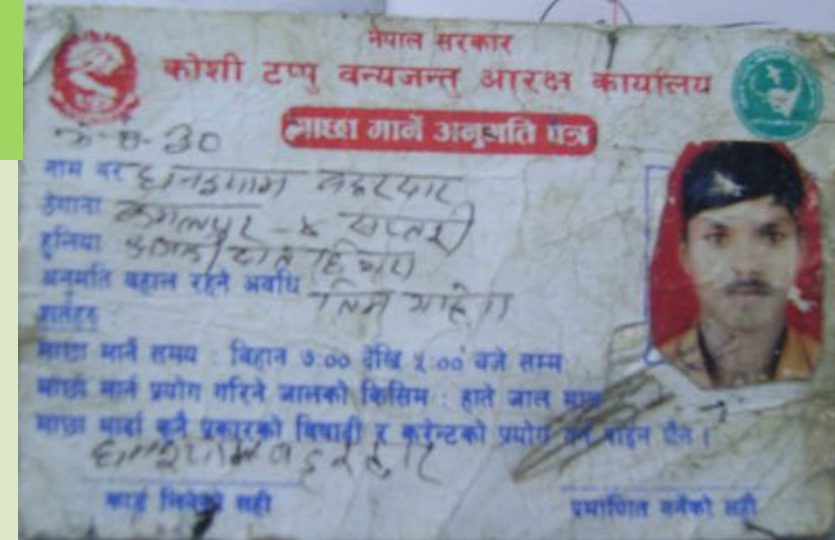 नेपाल सरकार
कोशी टप्पु वन्यजन्तु आरक्ष कार्यालय
माछा मार्ने अनुमति पत्र
नाम थर
ठेगाना कमलपुर - ४ सप्तरी
हुलिया
अनुमति बहाल रहने अवधि तिन महिना
शर्तहरु
माछा मार्ने समय : बिहान ७:०० देखि ५:०० बजे सम्म
माछा मार्न प्रयोग गरिने जालको किसिम : हाते जाल मात्र
माछा मार्दा कुनै प्रकारको बिषादी र करेन्टको प्रयोग गर्न पाइने छैन ।
कार्ड लिनेको सही
प्रमाणित गर्नेको सही